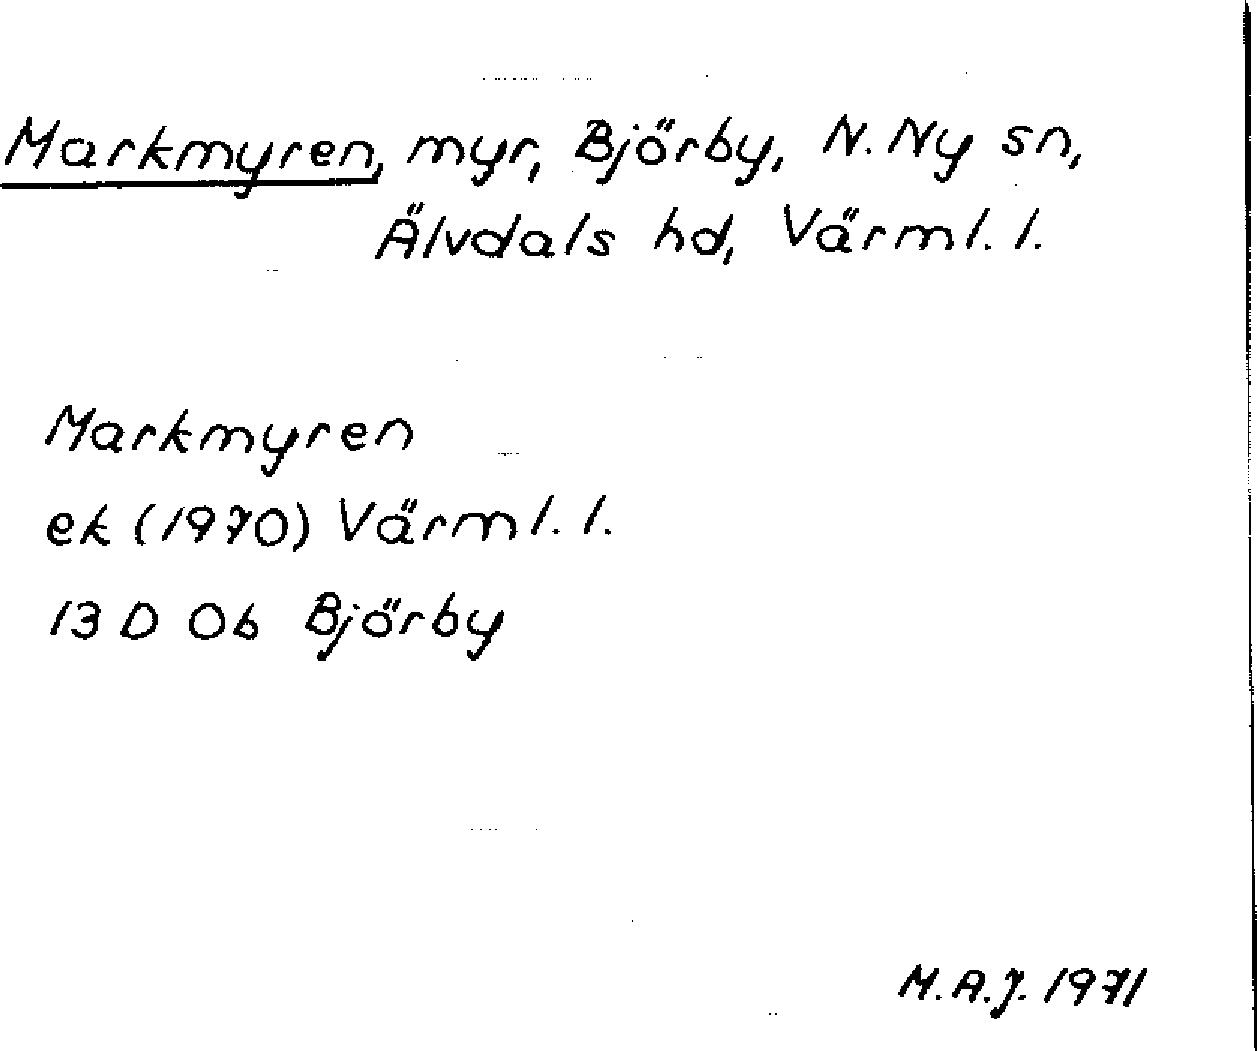 Markmyren, myr, Björby, N. Ny sn,
Älvdals hd, Värml. l.
Markmyren
ek (1970) Värml. l.
13 D 0b Björby
M.A.J. 1971